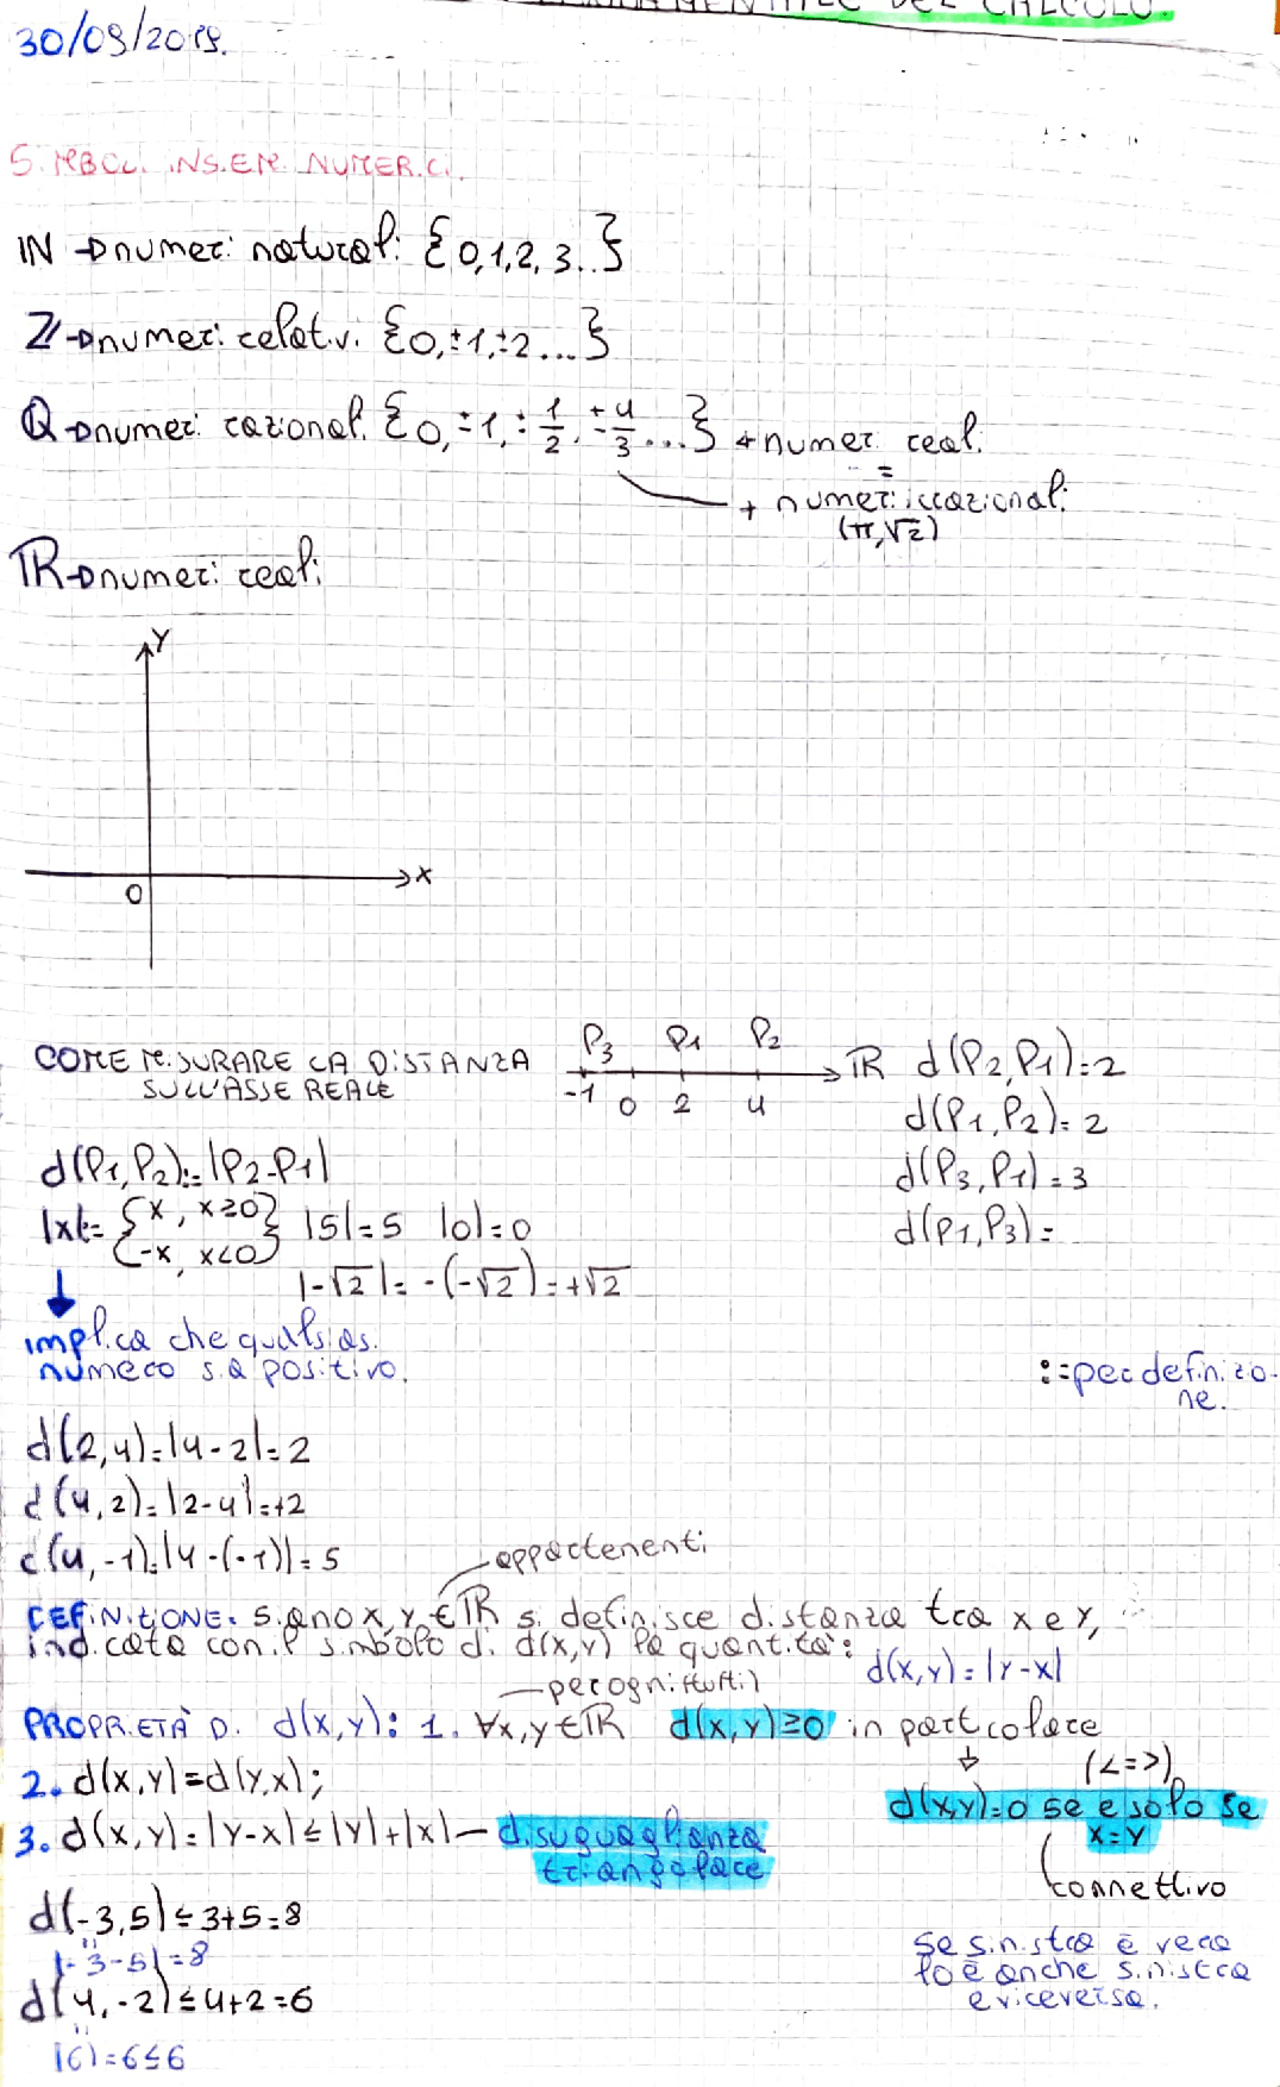 DEL CALCOLO.
30/09/2019.
SIMBOLI INSIEMI NUMERICI.
ℕ → numeri naturali {0,1,2,3..}
ℤ → numeri relativi {0,±1,±2...}
Q → numeri razionali {0,±1,±1/2,±4/3...} + numeri reali
=
+ numeri irrazionali
(π,√2)
ℝ → numeri reali
Y
X
0
COME MISURARE LA DISTANZA
SULL'ASSE REALE
P3 P1 P2
-1 0 2 4
ℝ
d(P2,P1)=2
d(P1,P2)=2
d(P3,P1)=3
d(P1,P3)=
d(P1,P2):=|P2-P1|
|x|:={x, x≥0
-x, x<0} |5|=5 |0|=0
|-√2|=-(-√2)=+√2
implica che qualsiasi
numero sia positivo.
:=per definizio-
ne.
d(2,4)=|4-2|=2
d(4,2)=|2-4|=+2
d(4,-1)=|4-(-1)|=5
appartenenti
DEFINIZIONE: siano x,y ∈ ℝ si definisce distanza tra x e y,
indicata con il simbolo di d(x,y) la quantità: d(x,y)=|y-x|
per ogni (tutti)
PROPRIETÀ DI d(x,y): 1. ∀x,y∈ℝ d(x,y)≥0 in particolare
(<=>)
d(x,y)=0 se e solo se
x=y
connettivo
2. d(x,y)=d(y,x);
3. d(x,y)=|y-x|≤|y|+|x| — disuguaglianza
triangolare
d(-3,5)≤3+5=8
"
|-3-5|=8
d(4,-2)≤4+2=6
"
|6|=6≤6
se sinistra è vera
lo è anche sinistra
e viceversa.